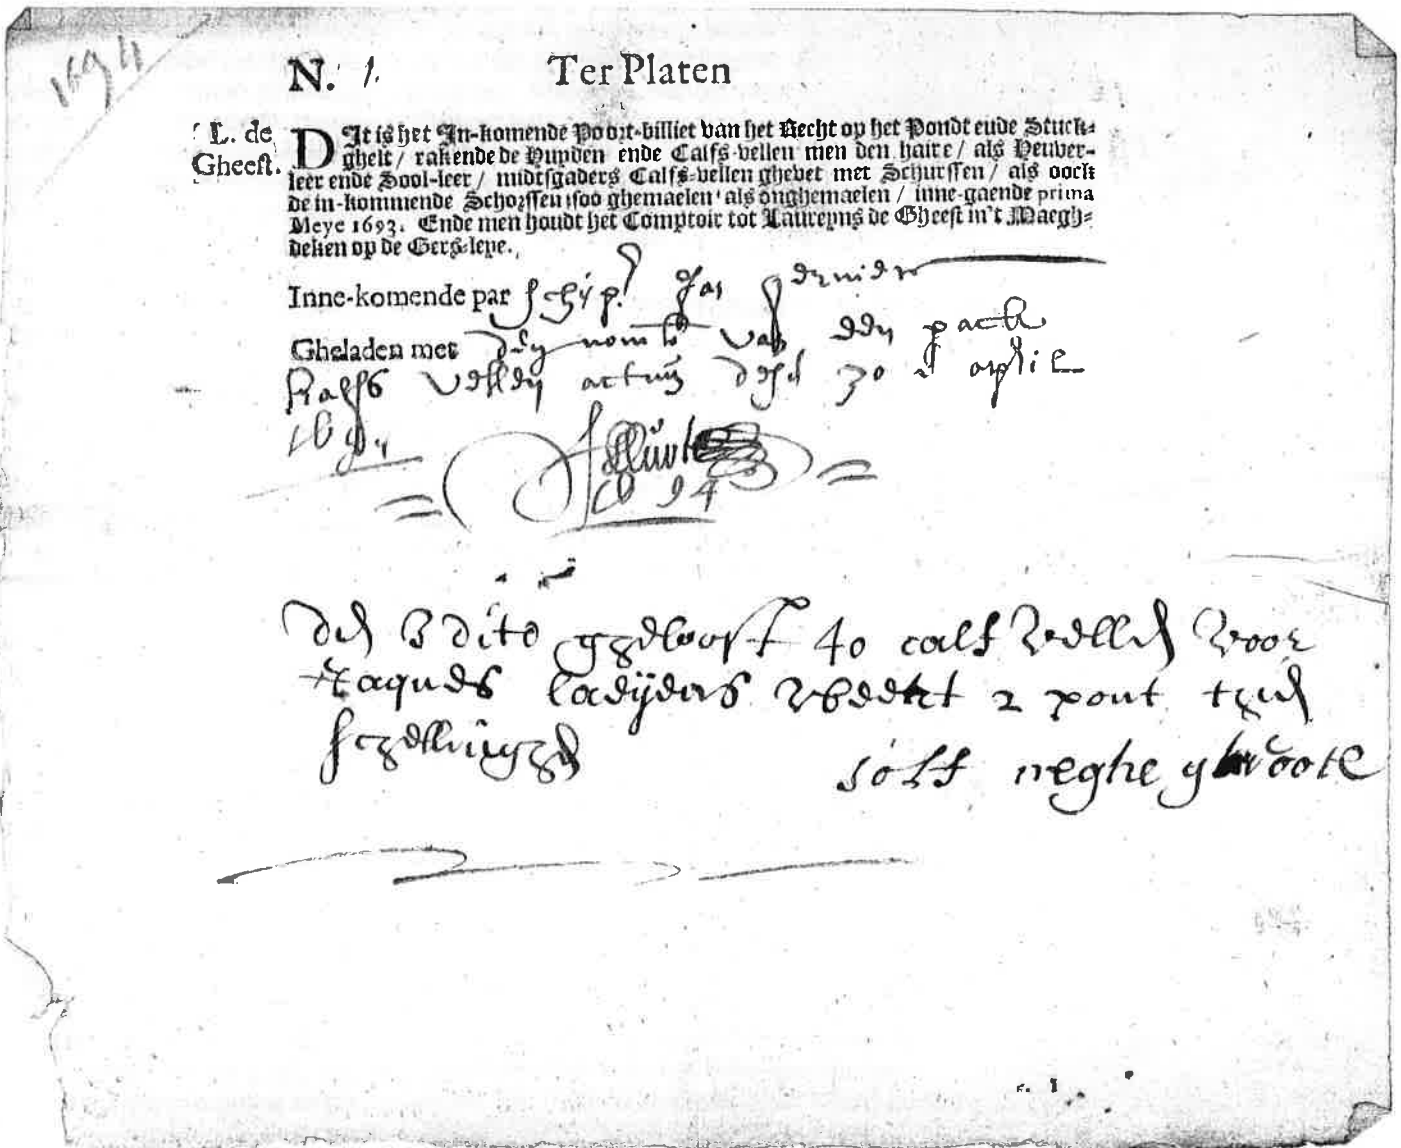 1694
N. 1.
Ter Platen
L. de
Gheest.
DIt is het In-komende Poort-billiet van het Recht op het Pondt ende Stuck-
ghelt / rakende de Huyden ende Calfs-vellen men den haire / als Heuver-
leer ende Sool-leer / midtsgaders Calfs-vellen ghevet met Schurssen / als oock
de in-kommende Schorssen soo ghemaelen als onghemaelen / inne-gaende prima
Meye 1693. Ende men houdt het Comptoir tot Laureyns de Gheest in't Maegh-
deken op de Gers-leye.
Inne-komende par schip Jas
Gheladen met den van een pack
kalfs vellen actum desen 30 april
1694
1694
den 3 dito ghelost 40 calf vellen voor
Jaques weert 2 pont tien
schellinghen
solf neghe groote